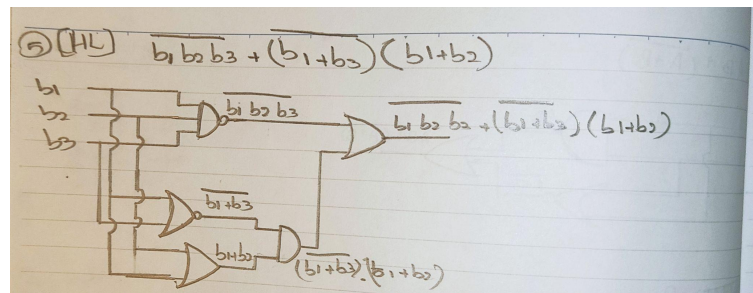 ⑤ [HL] \overline{b1 b2 b3} + (\overline{b1+b3})(b1+b2)
b1
b2
b3
\overline{b1 b2 b3}
\overline{b1 b2 b2} + (\overline{b1+b3})(b1+b2)
\overline{b1+b3}
b1+b2
(\overline{b1+b3}).(b1+b2)